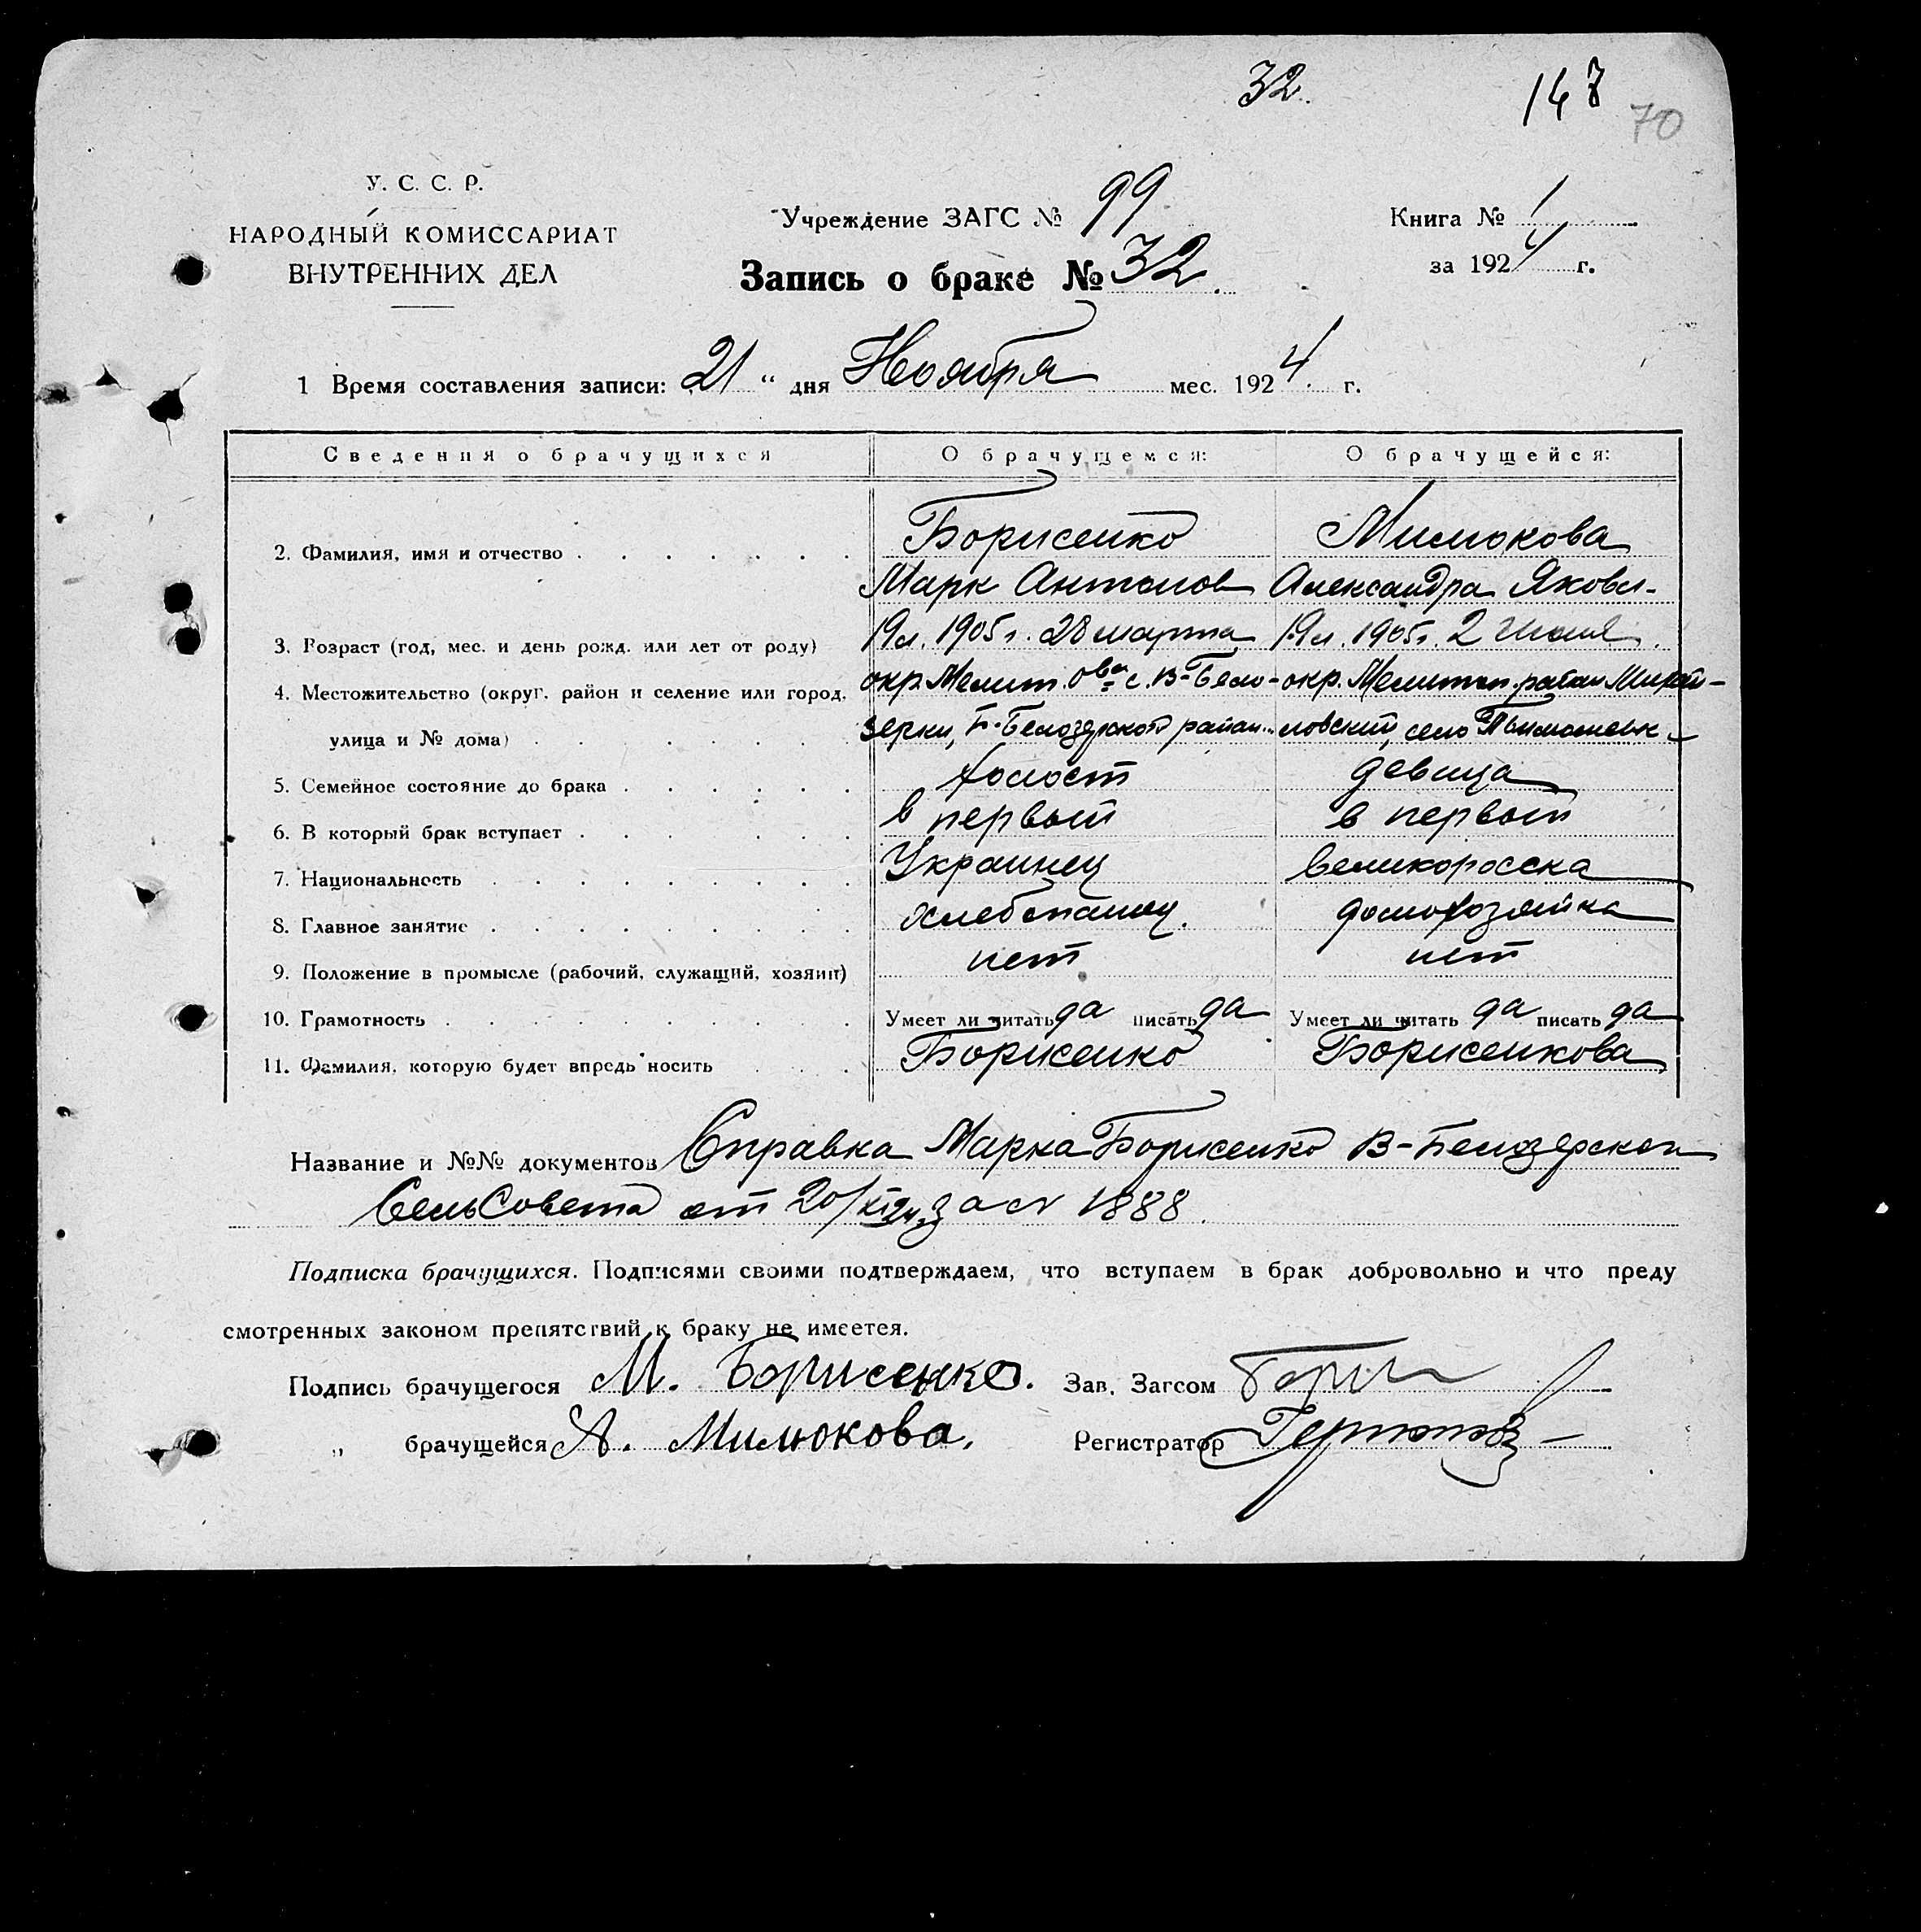 32.
147
70
У. С. С. Р.
НАРОДНЫЙ КОМИССАРИАТ
ВНУТРЕННИХ ДЕЛ
Учреждение ЗАГС № 99
Книга № 1
Запись о браке № 32.
за 1924 г.
1 Время составления записи: 21 " дня Ноября мес. 1924. г.
Сведения о брачущихся О брачущемся: О брачущейся:
2. Фамилия, имя и отчество Борисенко Милюкова
Марк Антонов Александра Яковл-
3. Возраст (год, мес. и день рожд. или лет от роду) 19 л. 1905 г. 28 марта 19 л. 1905 г. 2
4. Местожительство (округ. район и селение или город, окр. Мелит. ова с. В-Бело- окр. Мелитоп. район Михай-
улица и № дома) зерки, Б-Белозерской район ловский, село
5. Семейное состояние до брака холост девица
6. В который брак вступает в первый в первый
7. Национальность Украинец великоросска
8. Главное занятие хлебопашец. домохозяйка
9. Положение в промысле (рабочий, служащий, хозяин) нет нет
10. Грамотность Умеет ли читать да писать да Умеет ли читать да писать да
11. Фамилия, которую будет впредь носить Борисенко Борисенкова
Название и №№ документов Справка Марка Борисенко В-Белозерской
СельСовета от 20/XI 24 за № 1888.
Подписка брачущихся. Подписями своими подтверждаем, что вступаем в брак добровольно и что преду
смотренных законом препятствий к браку не имеется.
Подпись брачущегося М. Борисенко. Зав. Загсом
„ брачущейся А. Милюкова. Регистратор